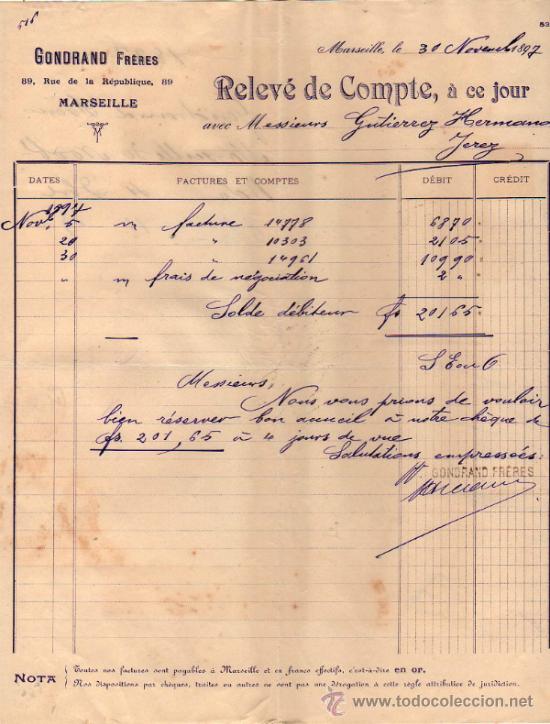 516
52
GONDRAND FRÈRES
89, Rue de la République, 89
MARSEILLE
Marseille, le 30 Novembre 1897
Relevé de Compte, à ce jour
avec Messieurs Gutierrez Hermano
Jerez
DATES FACTURES ET COMPTES DÉBIT CRÉDIT
1897
Nov. 5 facture 14778 6870
20 " 10303 2105
30 " 14961 10990
" frais de négociation 2 "
Solde débiteur fs 20165
S E ou O
Messieurs,
Nous vous prions de vouloir
bien réserver bon accueil à notre chèque de
fs. 201,65 à 4 jours de vue
Salutations empressées
GONDRAND FRÈRES
NOTA
Toutes nos factures sont payables à Marseille et en francs effectifs, c'est-à-dire en or.
Nos dispositions par chèques, traites ou autres ne sont pas une dérogation à cette règle attributive de juridiction.
todocoleccion.net